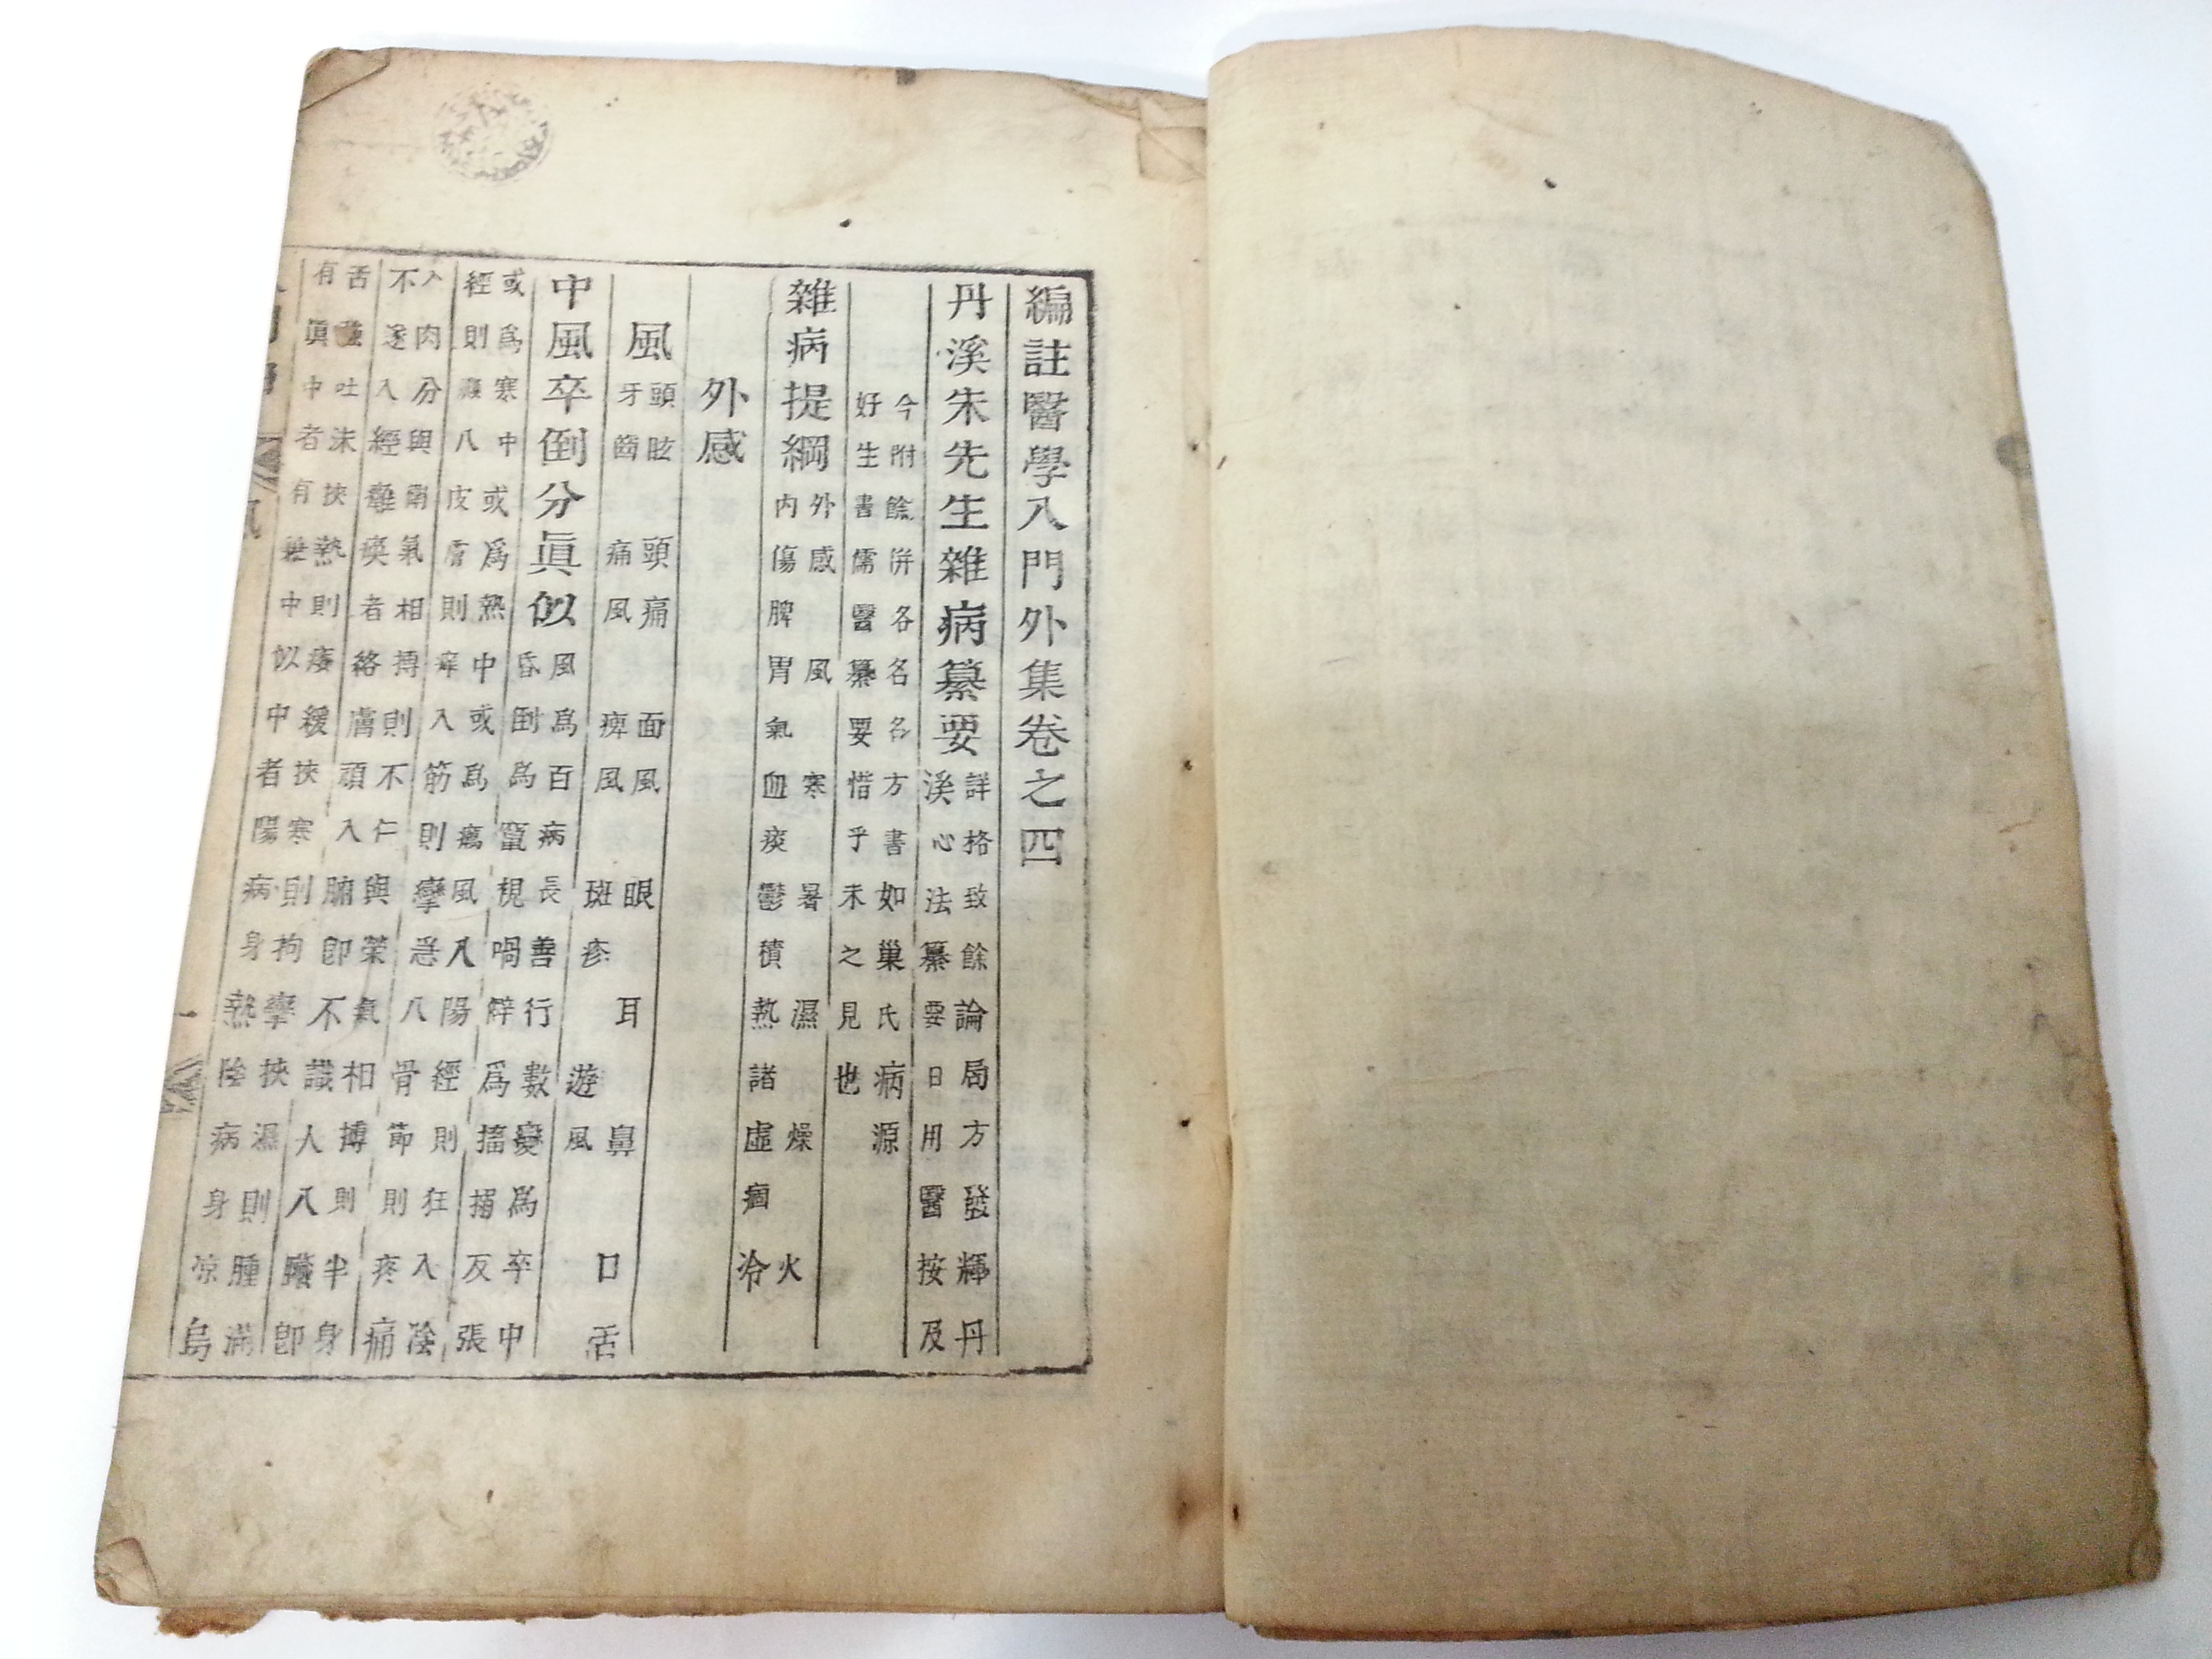 編註醫學入門外集卷之四
丹溪朱先生雜病纂要
詳格致餘論局方發輝丹
溪心法纂要日用醫按及
今附餘併各名名方書如巢氏病源
好生書儒醫纂要惜乎未之見也
雜病提綱
外感 風 寒 暑 濕 燥 火
內傷脾胃氣血痰鬱積熱諸虛痼冷
外感
風
頭眩 頭痛 面風 眼 耳 鼻 口舌
牙齒 痛風 痺風 斑疹 遊風
中風卒倒分眞似
風爲百病長善行數變爲卒中
昏倒爲竄視喎辟爲搐搦反張
或爲寒中或爲熱中或爲癘風入陽經則狂入陰
經則癲入皮膚則痒入筋則攣急入骨節則疼痛
入肉分與衛氣相搏則不仁與榮氣相搏則半身
不遂入經癱瘓者絡膚頑入腑即不識人入臟即
舌蹇吐沫挾熱則痿緩挾寒則拘攣挾濕則腫滿
有眞中者有類中似中者陽病身熱陰病身凉烏